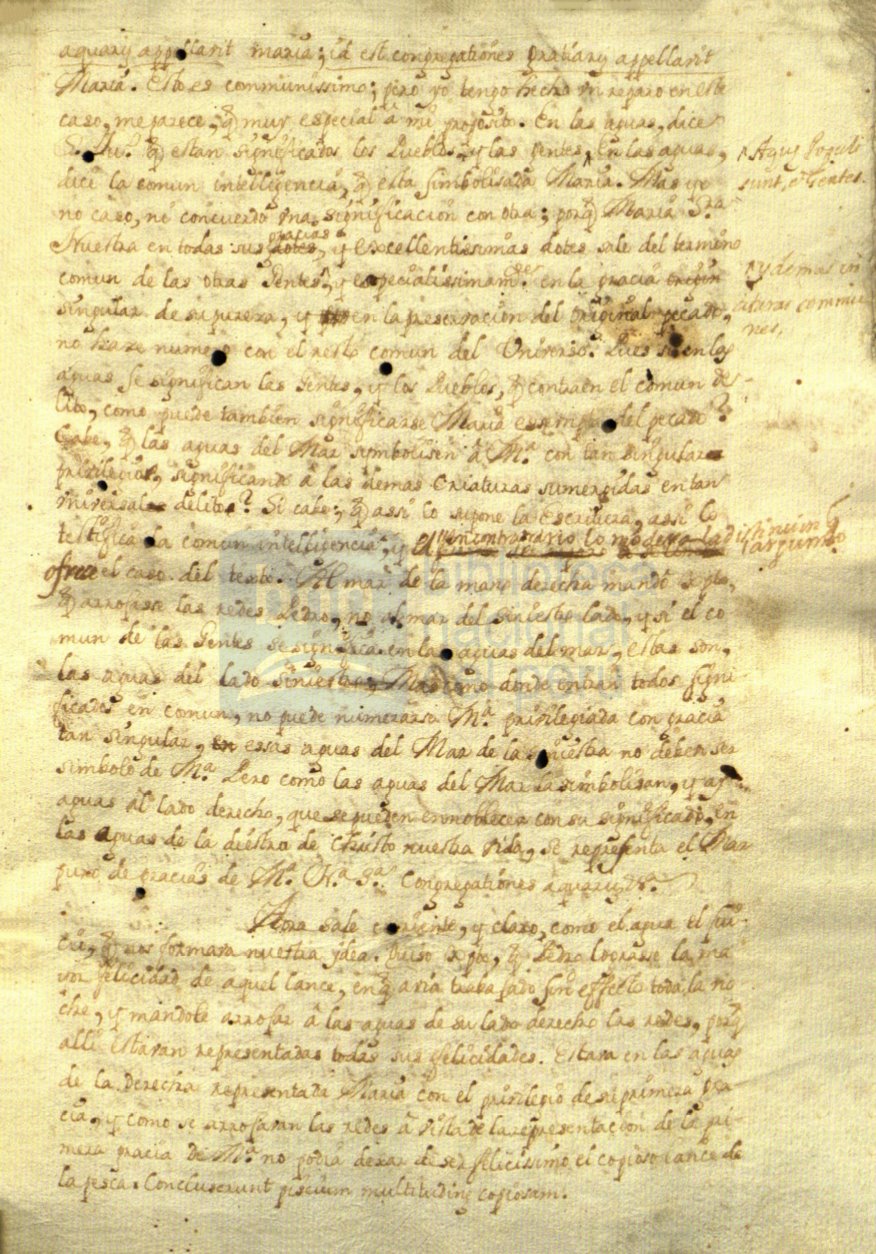 aquarũ appellavit maria; id est congregationes gratiarũ appellavit
Maria. Esto es communissimo; pero yo tengo hecho vn reparo en este
caso, me parece, q̃ muy especial â mi proposito. En las aguas, dice
S. Juº. q̃ estan significados los Pueblos, y las gentes, En las aguas,
Aquę Populi
sunt, et Gentes.
dice la comun intelligencia, q̃ esta simbolisada Maria. Mas yo
no caso, ni concuerdo vna significacion con otra; porq̃ Maria Sra
Nuestra en todas sus gracias dotes, y excellentissimas dotes sale del termino
comun de las otras Gentes, y especialissimamte. en la gracia
y demas criaturas communes,
singular de su pureza, y en la preservacion del original pecado,
no haze numero con el resto comun del Universo. Pues si en las
aguas se significan las Gentes, y los Pueblos, q̃ contraen el comun de-
lito, como puede tambien significarse Maria exempta del pecado?
Cabe, q̃ las aguas del Mar simbolisen â Mª. con tan singulares
privilegios, significando â las demas criaturas sumergidas en tan
universales delitos? Si cabe; q̃ assi lo supone la Escritura, assi lo
testifica la comun intelligencia; y el encontrado lo
ofrece el caso del texto. Al mar de la mano derecha mandô Xpto,
q̃ arrojasse las redes Pedro, no al mar del siniestro lado, y si el co
mun de las Gentes se significa en las aguas del mar, estas son,
las aguas del lado siniestro; Mas como donde entran todos signi
ficados en comun, no puede numerarse Mª. privilegiada con gracia
tan singular, en essas aguas del Mar de la siniestra no deben ser
simbolo de Mª. Pero como las aguas del Mar la simbolisan, y ay
aguas al lado derecho, que se pueden ennoblecer con su significado, en
las aguas de la diestro de Christo nuestra vida, se representa el Mar
puro de gracias de Mª. Nª. Sª. Congregationes aquarũ, &ª.
Aora sale corriente, y claro, como el agua el fu-
tu, q̃ nos formara nuestra ydea. Quiso Xpto, q̃ Pedro lograsse la ma
yor felicidad de aquel lance, en q̃ avia trabajado sin effecto toda la no
che, y mandole arrojar â las aguas de su lado derecho las redes, porq̃
alli estavan representadas todas sus felicidades. Estava en las aguas
de la derecha representada Maria con el privilegio de su primera gra
cia, y como se arrojaran las redes â vista de la representacion de la pri-
mera gracia de Mª. no podia dexar de ser felicissimo el copioso lance de
la pesca. Concluserunt piscium multitudinẽ copiosam.
biblioteca
nacional
del perú